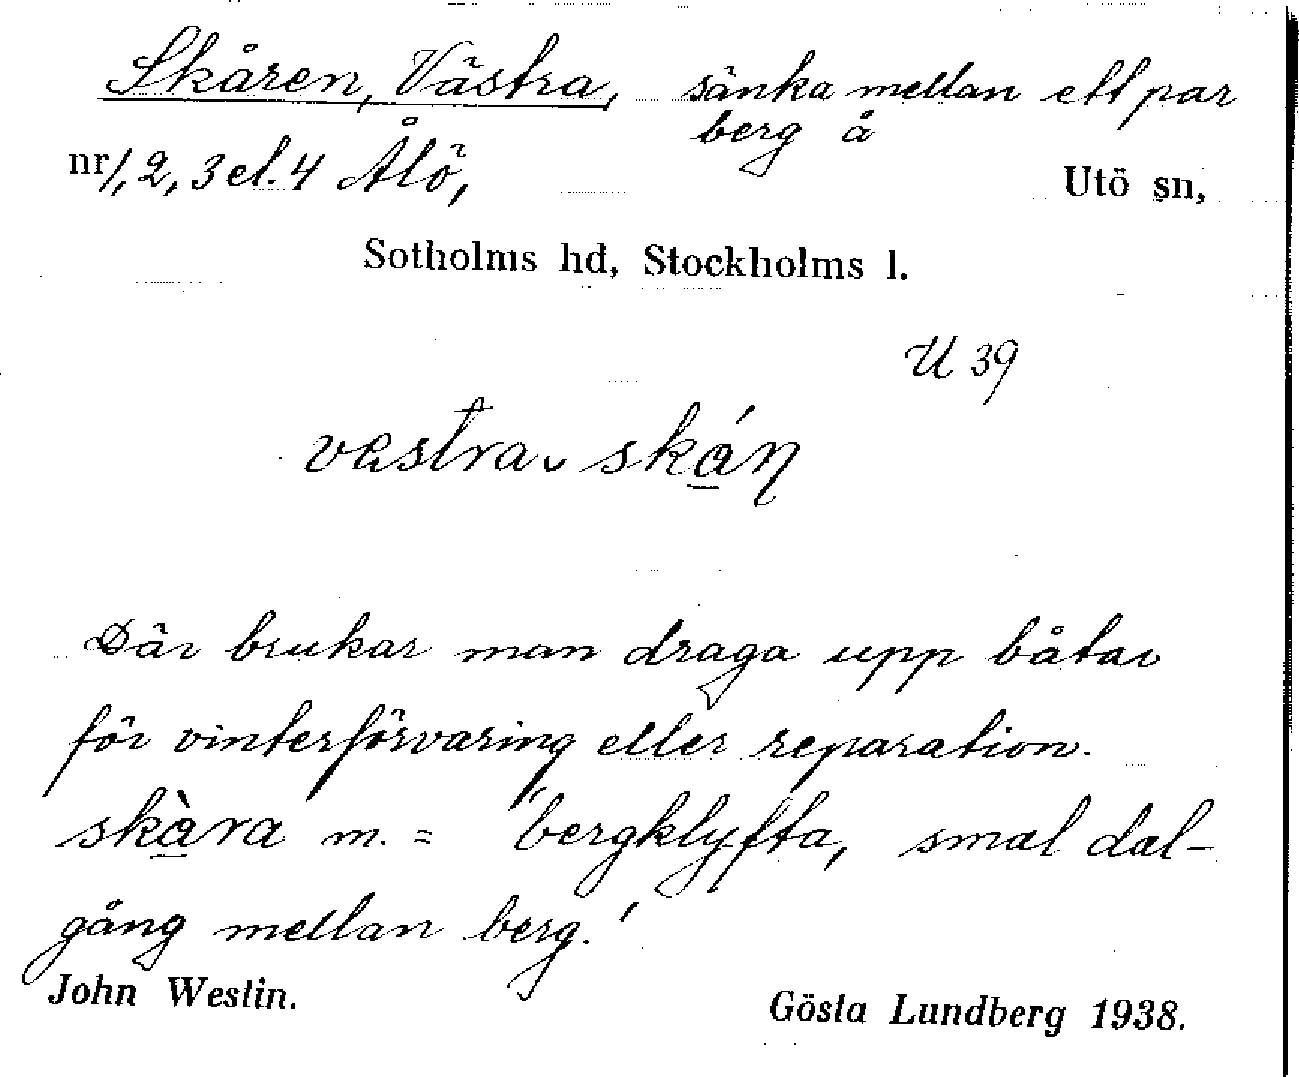 Skåren, Västra, sänka mellan ett par
berg å
nr 1, 2, 3 el. 4 Ålö, Utö sn,
Sotholms hd, Stockholms l.
U 39
västra skán
Där brukar man draga upp båtar
för vinterförvaring eller reparation.
skàra m. = 'bergklyfta, smal dal-
gång mellan berg.'
John Westin. Gösta Lundberg 1938.